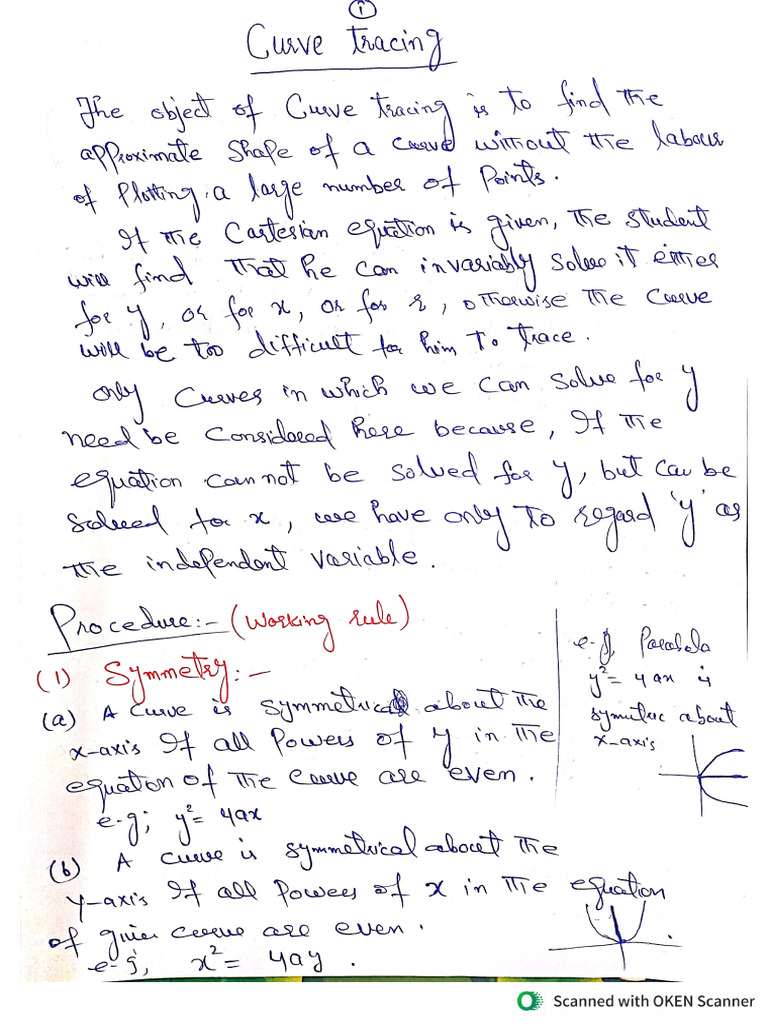 1
Curve tracing
The object of Curve tracing is to find the
approximate shape of a curve without the labour
of Plotting a large number of Points.
If the Cartesian equation is given, the student
will find that he can invariably solve it either
for y, or for x, or for r, otherwise the curve
will be too difficult for him to trace.
only Curves in which we can solve for y
need be considered here because, If the
equation cannot be solved for y, but can be
solved for x, we have only to regard 'y' as
the independent variable.
Procedure:- (Working rule)
(1) Symmetry:-
(a) A curve is symmetrical about the
x-axis If all Powers of y in the
equation of the curve are even.
e.g; y²= 4ax
e.g, Parabola
y²= 4ax is
symmetric about
x-axis
(b) A curve is symmetrical about the
y-axis If all Powers of x in the equation
of given curve are even.
e.g, x²= 4ay.
Scanned with OKEN Scanner